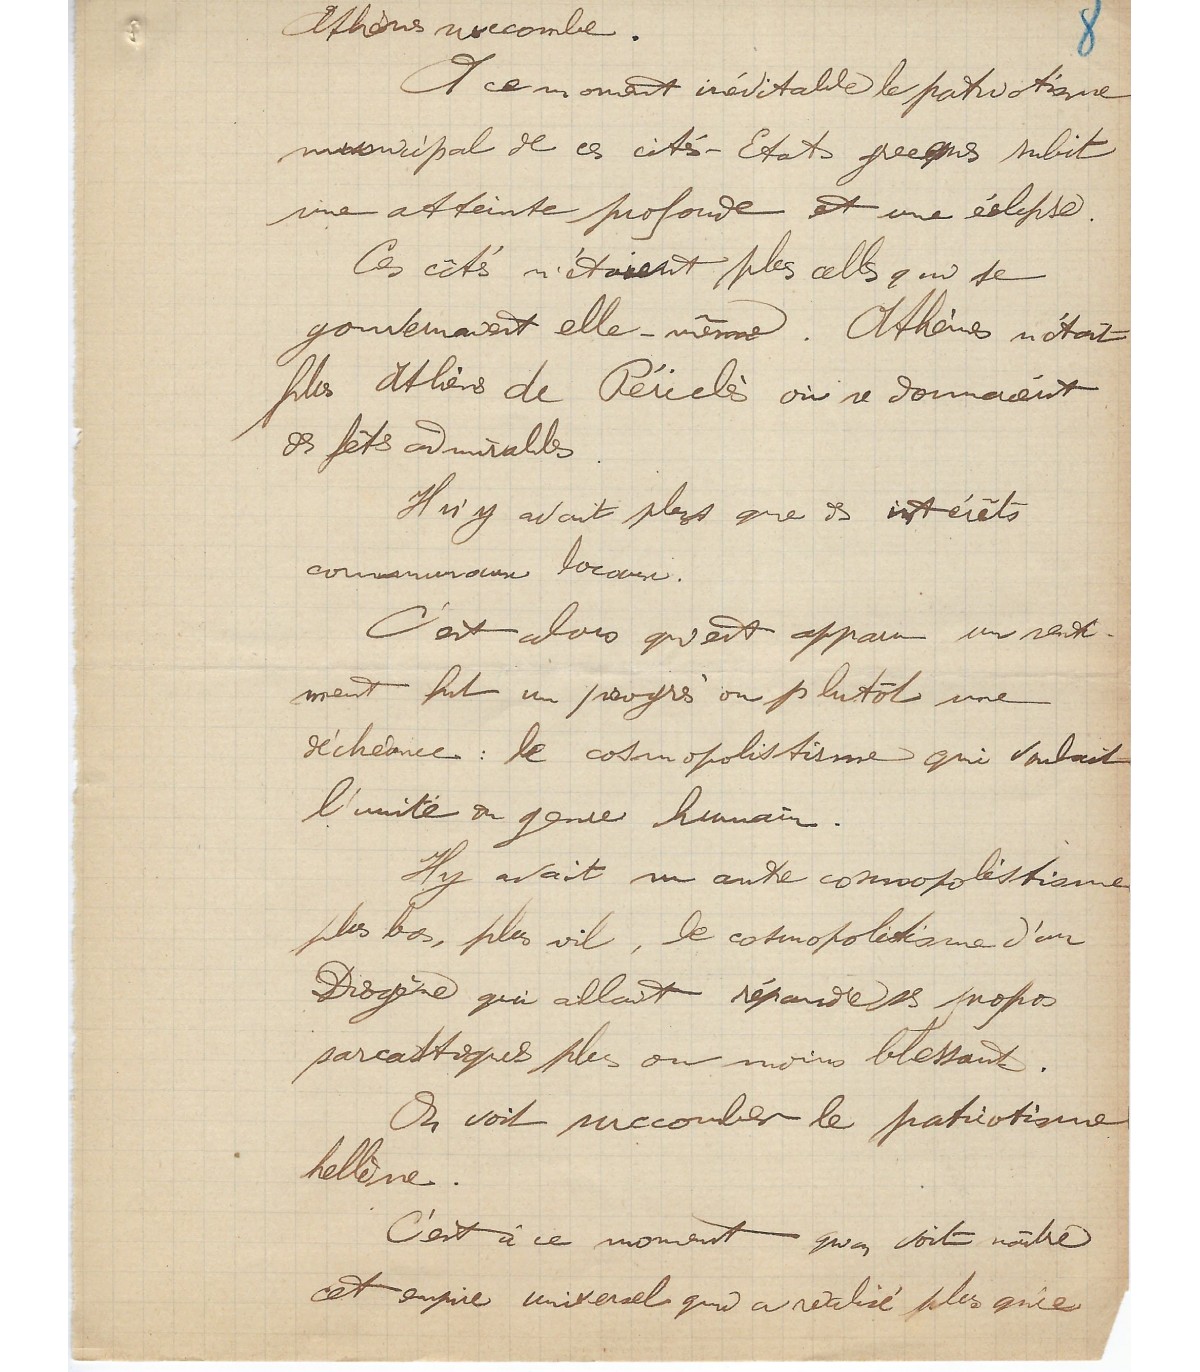 8
Athènes succombe.
A ce moment inévitable le patriotisme
municipal de ces cités-Etats grecques subit
une atteinte profonde et une éclipse.
Ces cités n'étaient plus celles qui se
gouvernaient elle-même. Athènes n'était
plus Athènes de Périclès où se donnaient
des fêtes admirables.
Il n'y avait plus que des intérêts
communaux locaux.
C'est alors qu'est apparu un senti-
ment fut un progrès ou plutôt une
déchéance : le cosmopolistisme qui voulait
l'unité du genre humain.
Il y avait un autre cosmopolistisme
plus bas, plus vil, le cosmopolistisme d'un
Diogène qui allait répandre ses propos
sarcastiques plus ou moins blessant.
On voit succomber le patriotisme
hellène.
C'est à ce moment qu'on voit naître
cet empire universel qui a réalisé plus que